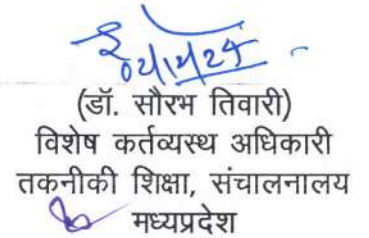 02/12/24
(डॉ. सौरभ तिवारी)
विशेष कर्तव्यस्थ अधिकारी
तकनीकी शिक्षा, संचालनालय
मध्यप्रदेश